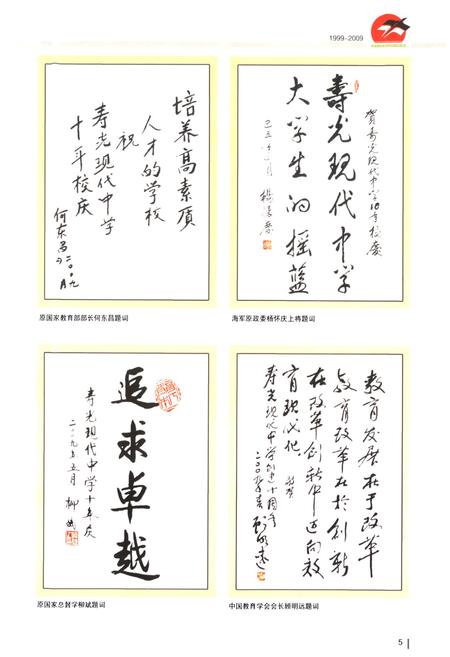 1999-2009
培养高素质
人才的学校
祝
寿光现代中学
十年校庆
何东昌
二〇〇九
原国家教育部部长何东昌题词
贺寿光现代中学10年校庆
寿光现代中学
大学生的摇篮
海军原政委杨怀庆上将题词
追求卓越
寿光现代中学十年庆
二〇〇九年五月
柳斌
原国家总督学柳斌题词
教育发展在于改革
教育改革在于创新
在改革创新中迈向教
育现代化
寿光现代中学创建十周年
顾明远
中国教育学会会长顾明远题词
5